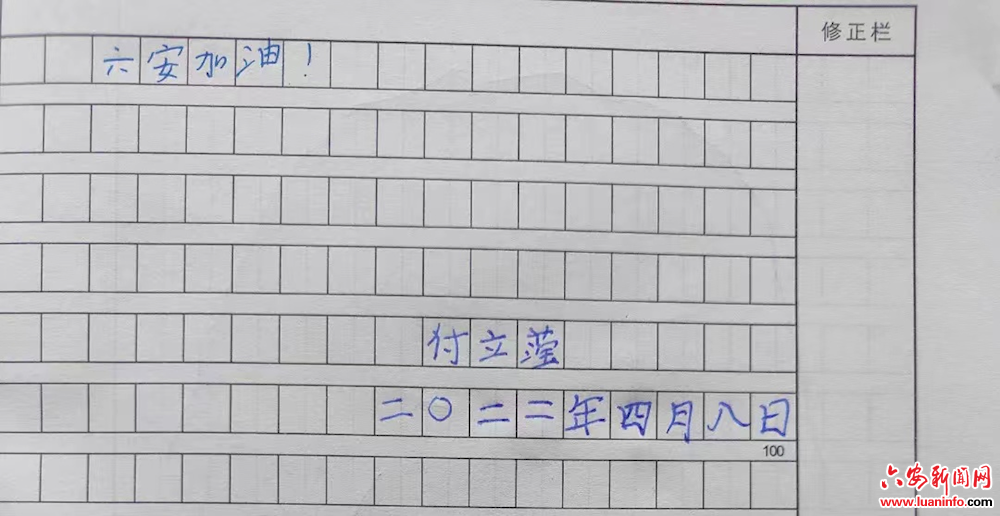 修正栏
六安加油！
付立莹
二〇二二年四月八日
100
六安新闻网
www.luaninfo.com